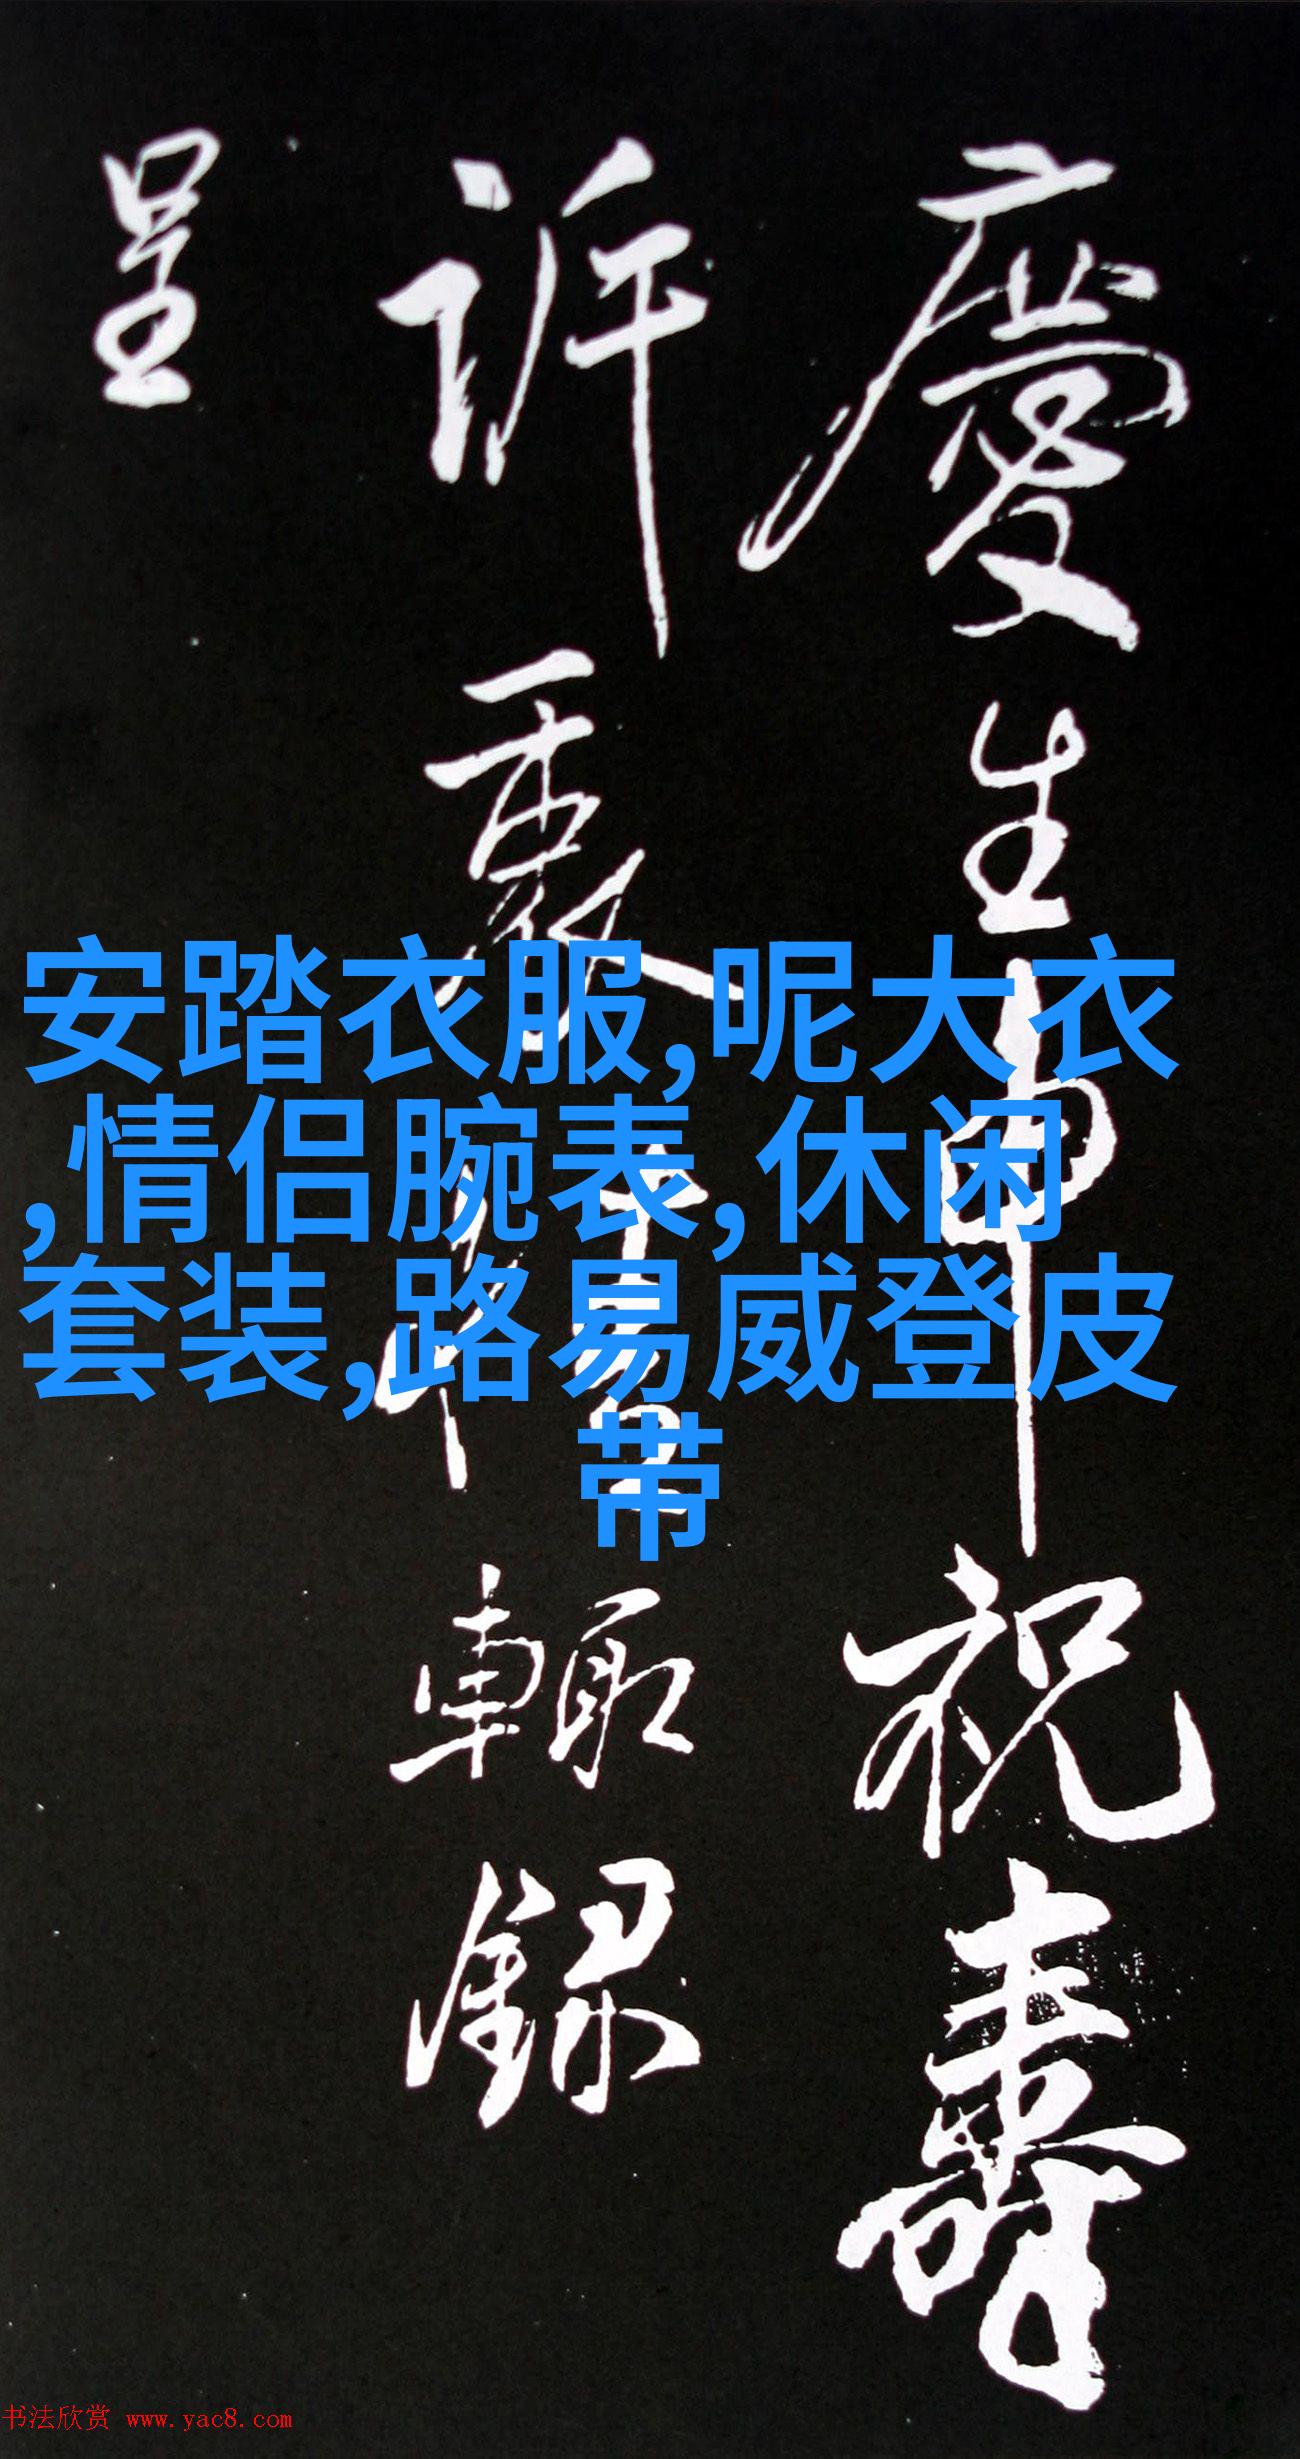 慶生申祝壽
訢裹
輒錄
呈
安踏衣服,呢大衣
,情侣腕表,休闲
套装,路易威登皮
带
书法欣赏 www.yac8.com